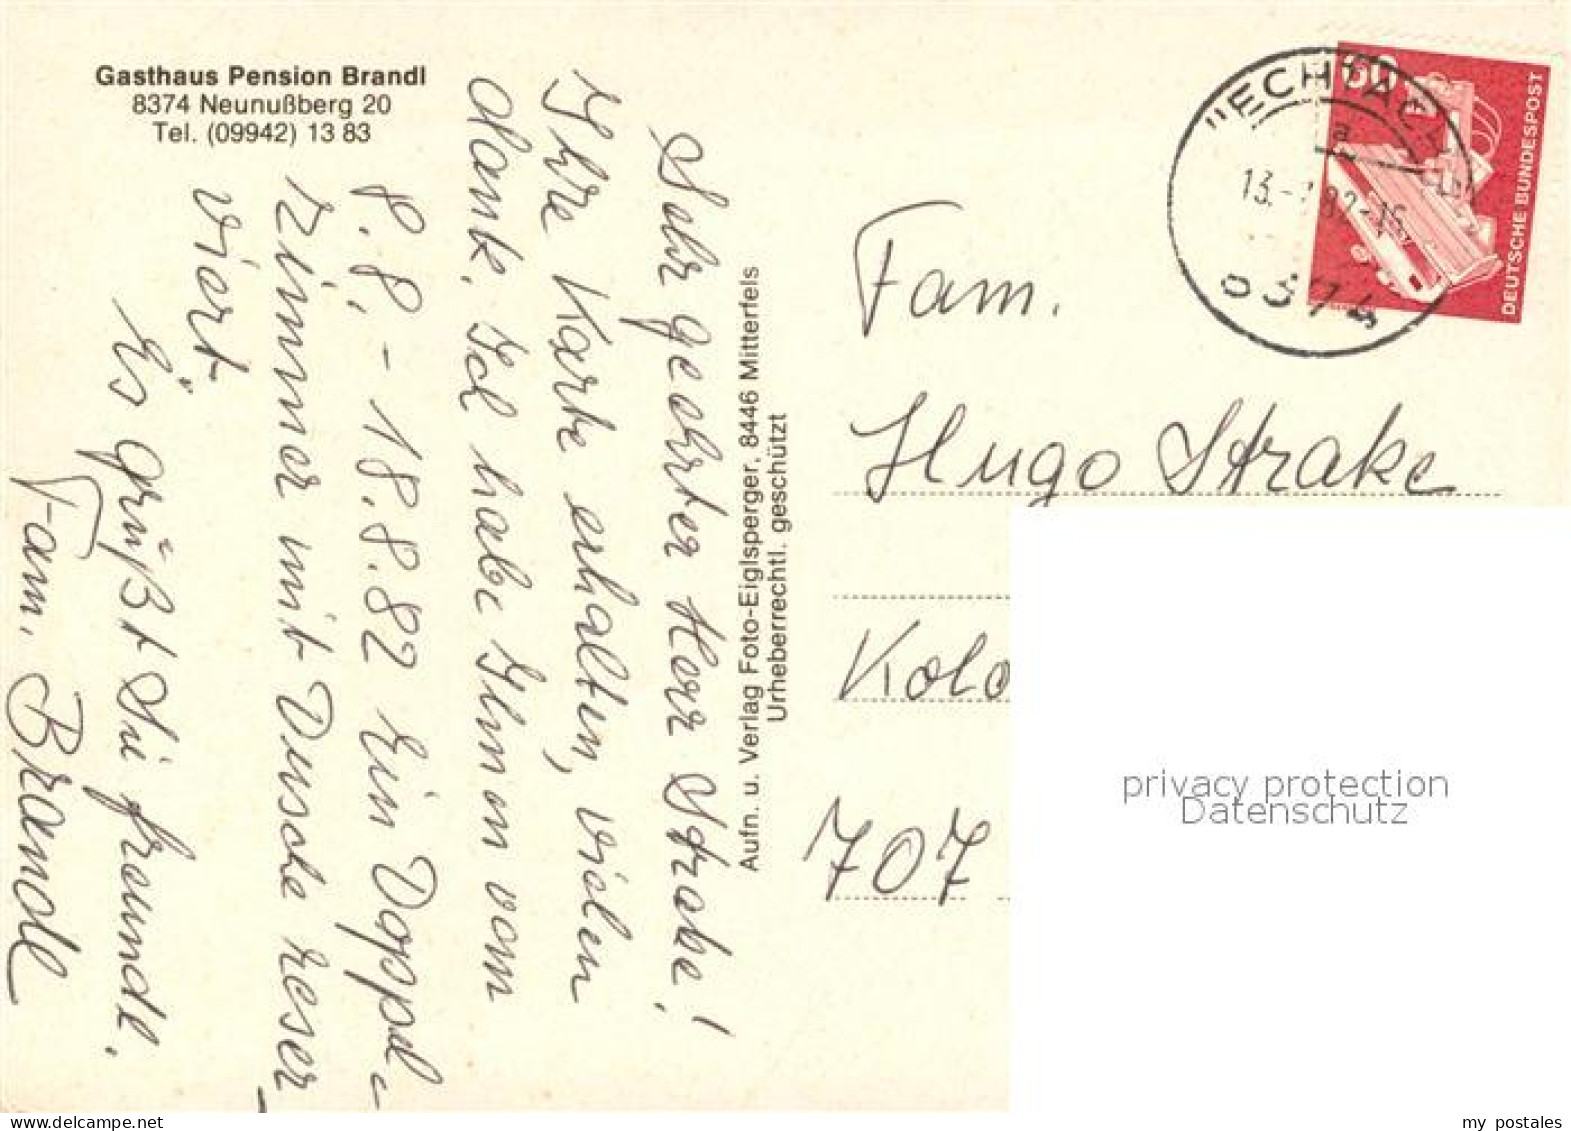 Gasthaus Pension Brandl
8374 Neunußberg 20
Tel. (09942) 13 83
Sehr geehrter Herr Strake!
Ihre Karte erhalten, vielen
Dank. Ich habe Ihnen vom
8.8. - 18.8.82 ein Doppel-
zimmer mit Dusche reser-
viert
Es grüßt Sie freundl.
Fam. Brandl
Aufn. u. Verlag Foto-Eiglsperger, 8446 Mitterfels
Urheberrechtl. geschützt
60
DEUTSCHE BUNDESPOST
a
Fam.
Hugo Strake
Kolo
707
privacy protection
Datenschutz
www.delcampe.net
my_postales